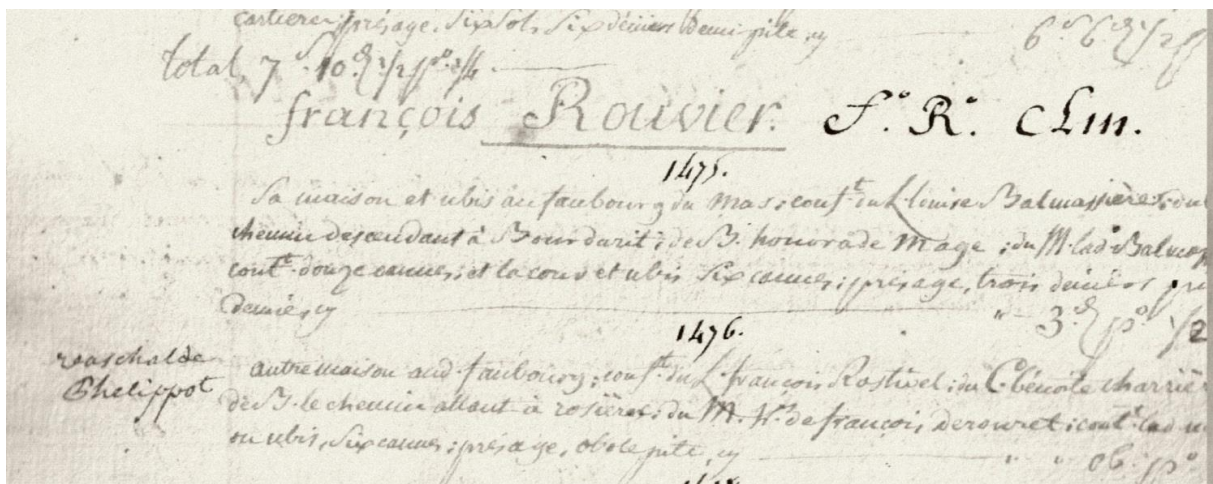 cartierer; présage, six sols, six deniers demi pite, cy 6.s 6.d 1/2 p
total, 7.s 10.d 1/2 p.o 3/4
françois Rouvier. f.o R.o CLm.
1475.
Sa maison et ubis au faubourg du mas; conf.t du L. louise Balmassière; du
chemin descendant à Bourdarit; de B. honorade mage; du M. lad.e Balmas
cont.t douze cannes; et la cour et ubis six cannes; présage, trois deniers
demie, cy " 3.d p.o 1/2
1476.
autre maison aud. faubourg; conf.t du L. françois Rostivel; du C. bénoite charrièr
de B. le chemin allant à rosières; du M. h.r de françois derouret; cont.t lad.
ou ubis, six cannes; présage, obole pite, cy " " ob. p.o
vaschalde
Phelippot